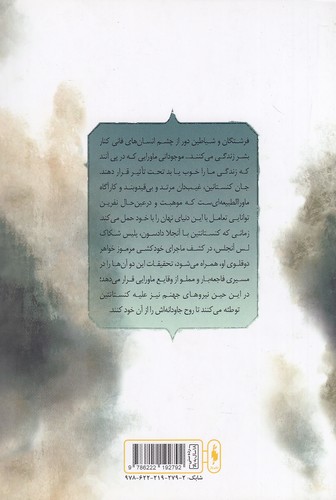 فرشتگان و شیاطین دور از چشم انسان‌های فانی کنار
بشر زندگی می‌کنند. موجوداتی ماورایی که در پی آنند
که زندگی ما را خوب یا بد تحت تأثیر قرار دهند.
جان کنستانتین، غیب‌دان مرتد و بی‌قیدوبند و کارآگاه
ماورالطبیعه‌ای‌ست که موهبت و درعین‌حال نفرین
توانایی تعامل با این دنیای نهان را با خود حمل می‌کند
زمانی که کنستانتین با آنجلا دادسون، پلیس شکاک
لس آنجلس، در کشف ماجرای خودکشی مرموز خواهر
دوقلوی او، همراه می‌شود، تحقیقات این دو آن‌ها را در
مسیری فاجعه‌بار و مملو از وقایع ماورایی قرار می‌دهد؛
در این حین نیروهای جهنم نیز علیه کنستانتین
توطئه می‌کنند تا روح جاودانه‌اش را از آن خود کنند.
9 786222 192792
شابک: ۲-۲۷۹-۲۱۹-۶۲۲-۹۷۸